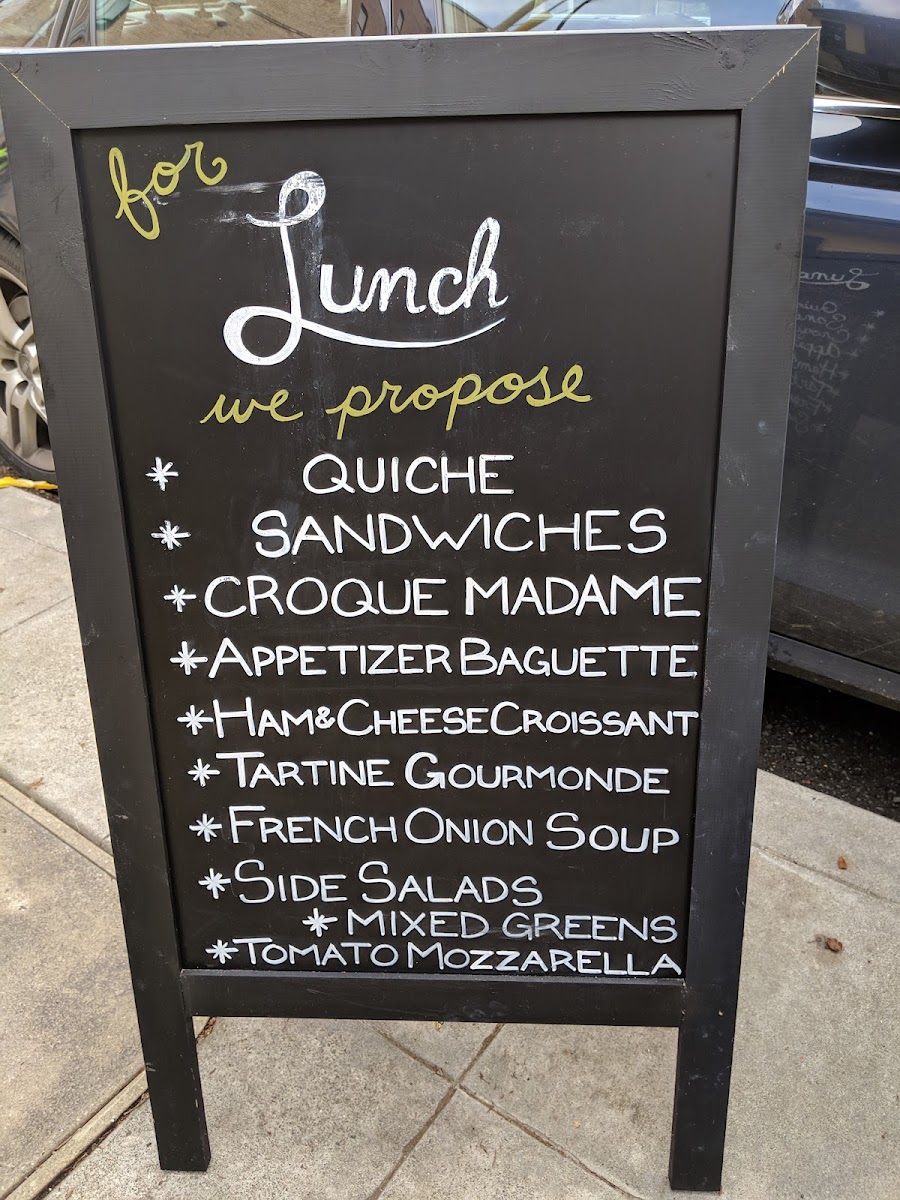 for
Lunch
we propose
* QUICHE
* SANDWICHES
* CROQUE MADAME
* APPETIZER BAGUETTE
* HAM & CHEESE CROISSANT
* TARTINE GOURMONDE
* FRENCH ONION SOUP
* SIDE SALADS
* MIXED GREENS
* TOMATO MOZZARELLA